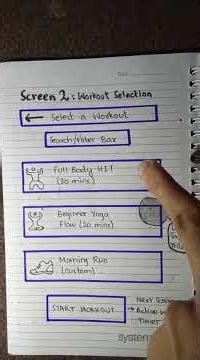 Screen 2: Workout Selection
← Select a Workout
Search/Filter Bar
Full Body HIT
(30 mins)
Beginner Yoga
Flow (20 mins)
Morning Run
(Custom)
START WORKOUT
Next Screen
→ Active
Timer
system